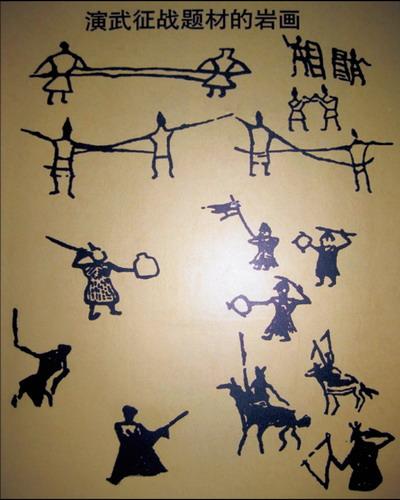 演武征战题材的岩画